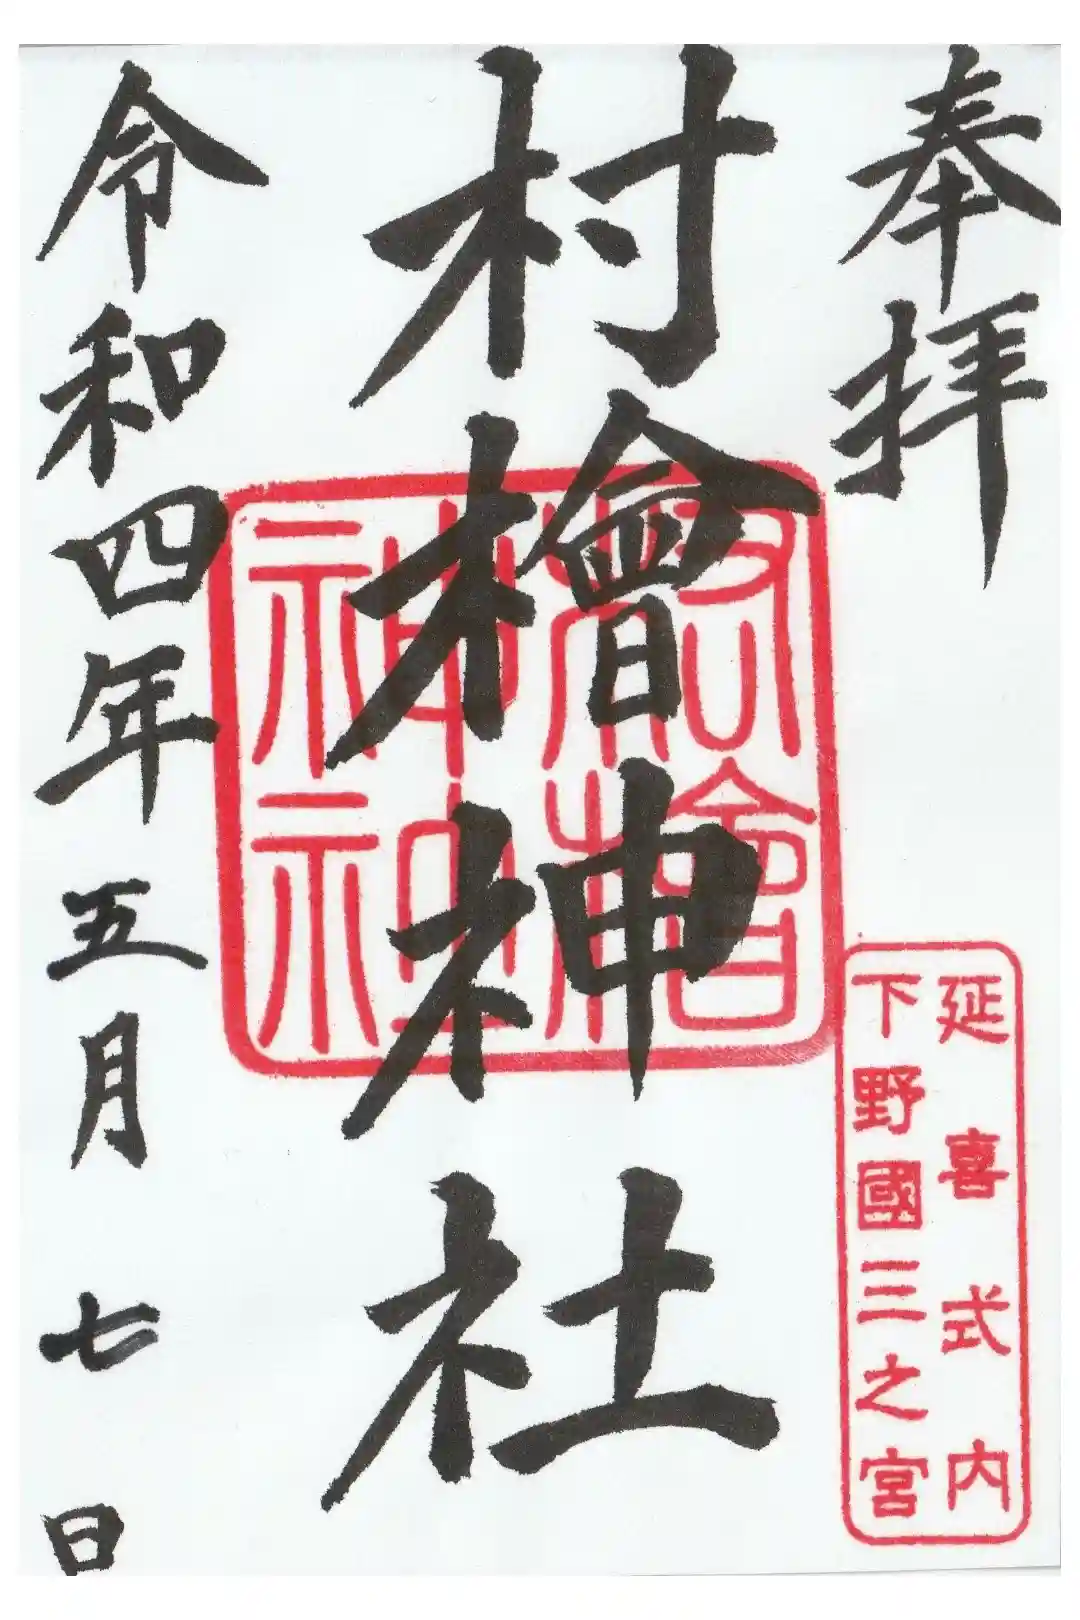 奉拝
延喜式内
下野國三之宮
村檜神社
檜
神社
令和四年五月七日